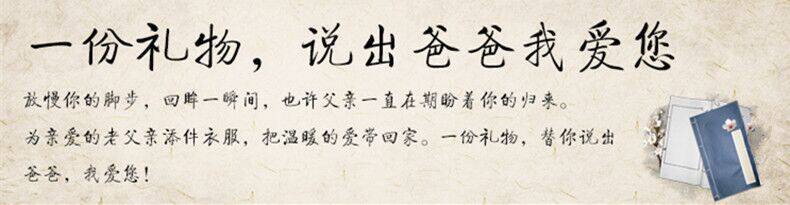 一份礼物，说出爸爸我爱您
放慢你的脚步，回眸一瞬间，也许父亲一直在期盼着你的归来。
为亲爱的老父亲添件衣服，把温暖的爱带回家。一份礼物，替你说出
爸爸，我爱您！